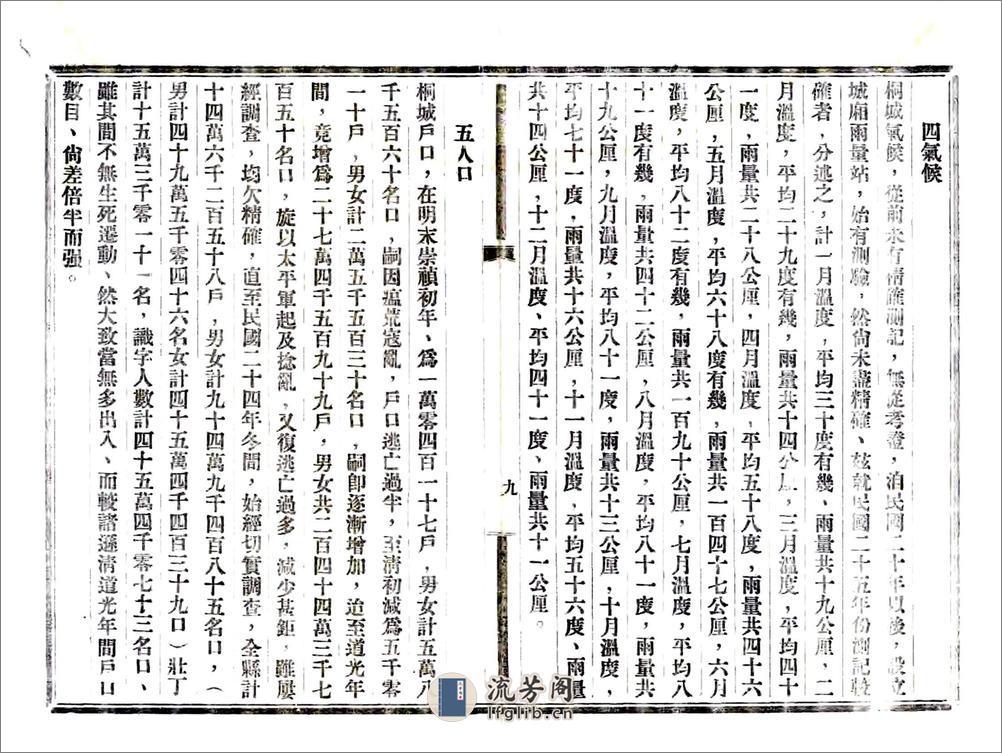 四氣候
桐城氣候，從前未有精確測記，無從考證，洎民國二十年以後，設立
城廂雨量站，始有測驗，然尙未盡精確、玆就民國二十五年份測記較
確者，分述之，計一月溫度，平均三十度有幾，雨量共十九公厘，二
月溫度，平均二十九度有幾，雨量共十四公厘，三月溫度，平均四十
一度，雨量共二十八公厘，四月溫度，平均五十八度，雨量共四十六
公厘，五月溫度，平均六十八度有幾，雨量共一百四十七公厘，六月
溫度，平均八十二度有幾，雨量共一百九十公厘，七月溫度，平均八
十一度有幾，雨量共四十二公厘，八月溫度，平均八十一度，雨量共
十九公厘，九月溫度，平均八十一度，雨量共十三公厘，十月溫度，
平均七十一度，雨量共十六公厘，十一月溫度，平均五十六度、雨量
共十四公厘，十二月溫度、平均四十一度、雨量共十一公厘。
九
五人口
桐城戶口，在明末崇禎初年、爲一萬零四百一十七戶，男女計五萬八
千五百六十名口，嗣因瘟荒寇亂，戶口逃亡過半，至淸初減爲五千零
一十戶，男女計二萬五千五百三十名口，嗣卽逐漸增加，迨至道光年
間，竟增爲二十七萬四千五百九十九戶，男女共二百四十四萬三千七
百五十名口，旋以太平軍起及捻亂，又復逃亡過多，減少甚鉅，雖屢
經調查，均欠精確，直至民國二十四年冬間，始經切實調查，全縣計
十四萬六千二百五十八戶，男女計九十四萬九千四百八十五名口，（
男計四十九萬五千零四十六名女計四十五萬四千四百三十九口）壯丁
計十五萬三千零一十一名，識字人數計四十五萬四千零七十三名口、
雖其間不無生死遷動、然大致當無多出入、而較諸遜淸道光年間戶口
數目、尙差倍半而强。
流芳閣
lfglib.cn